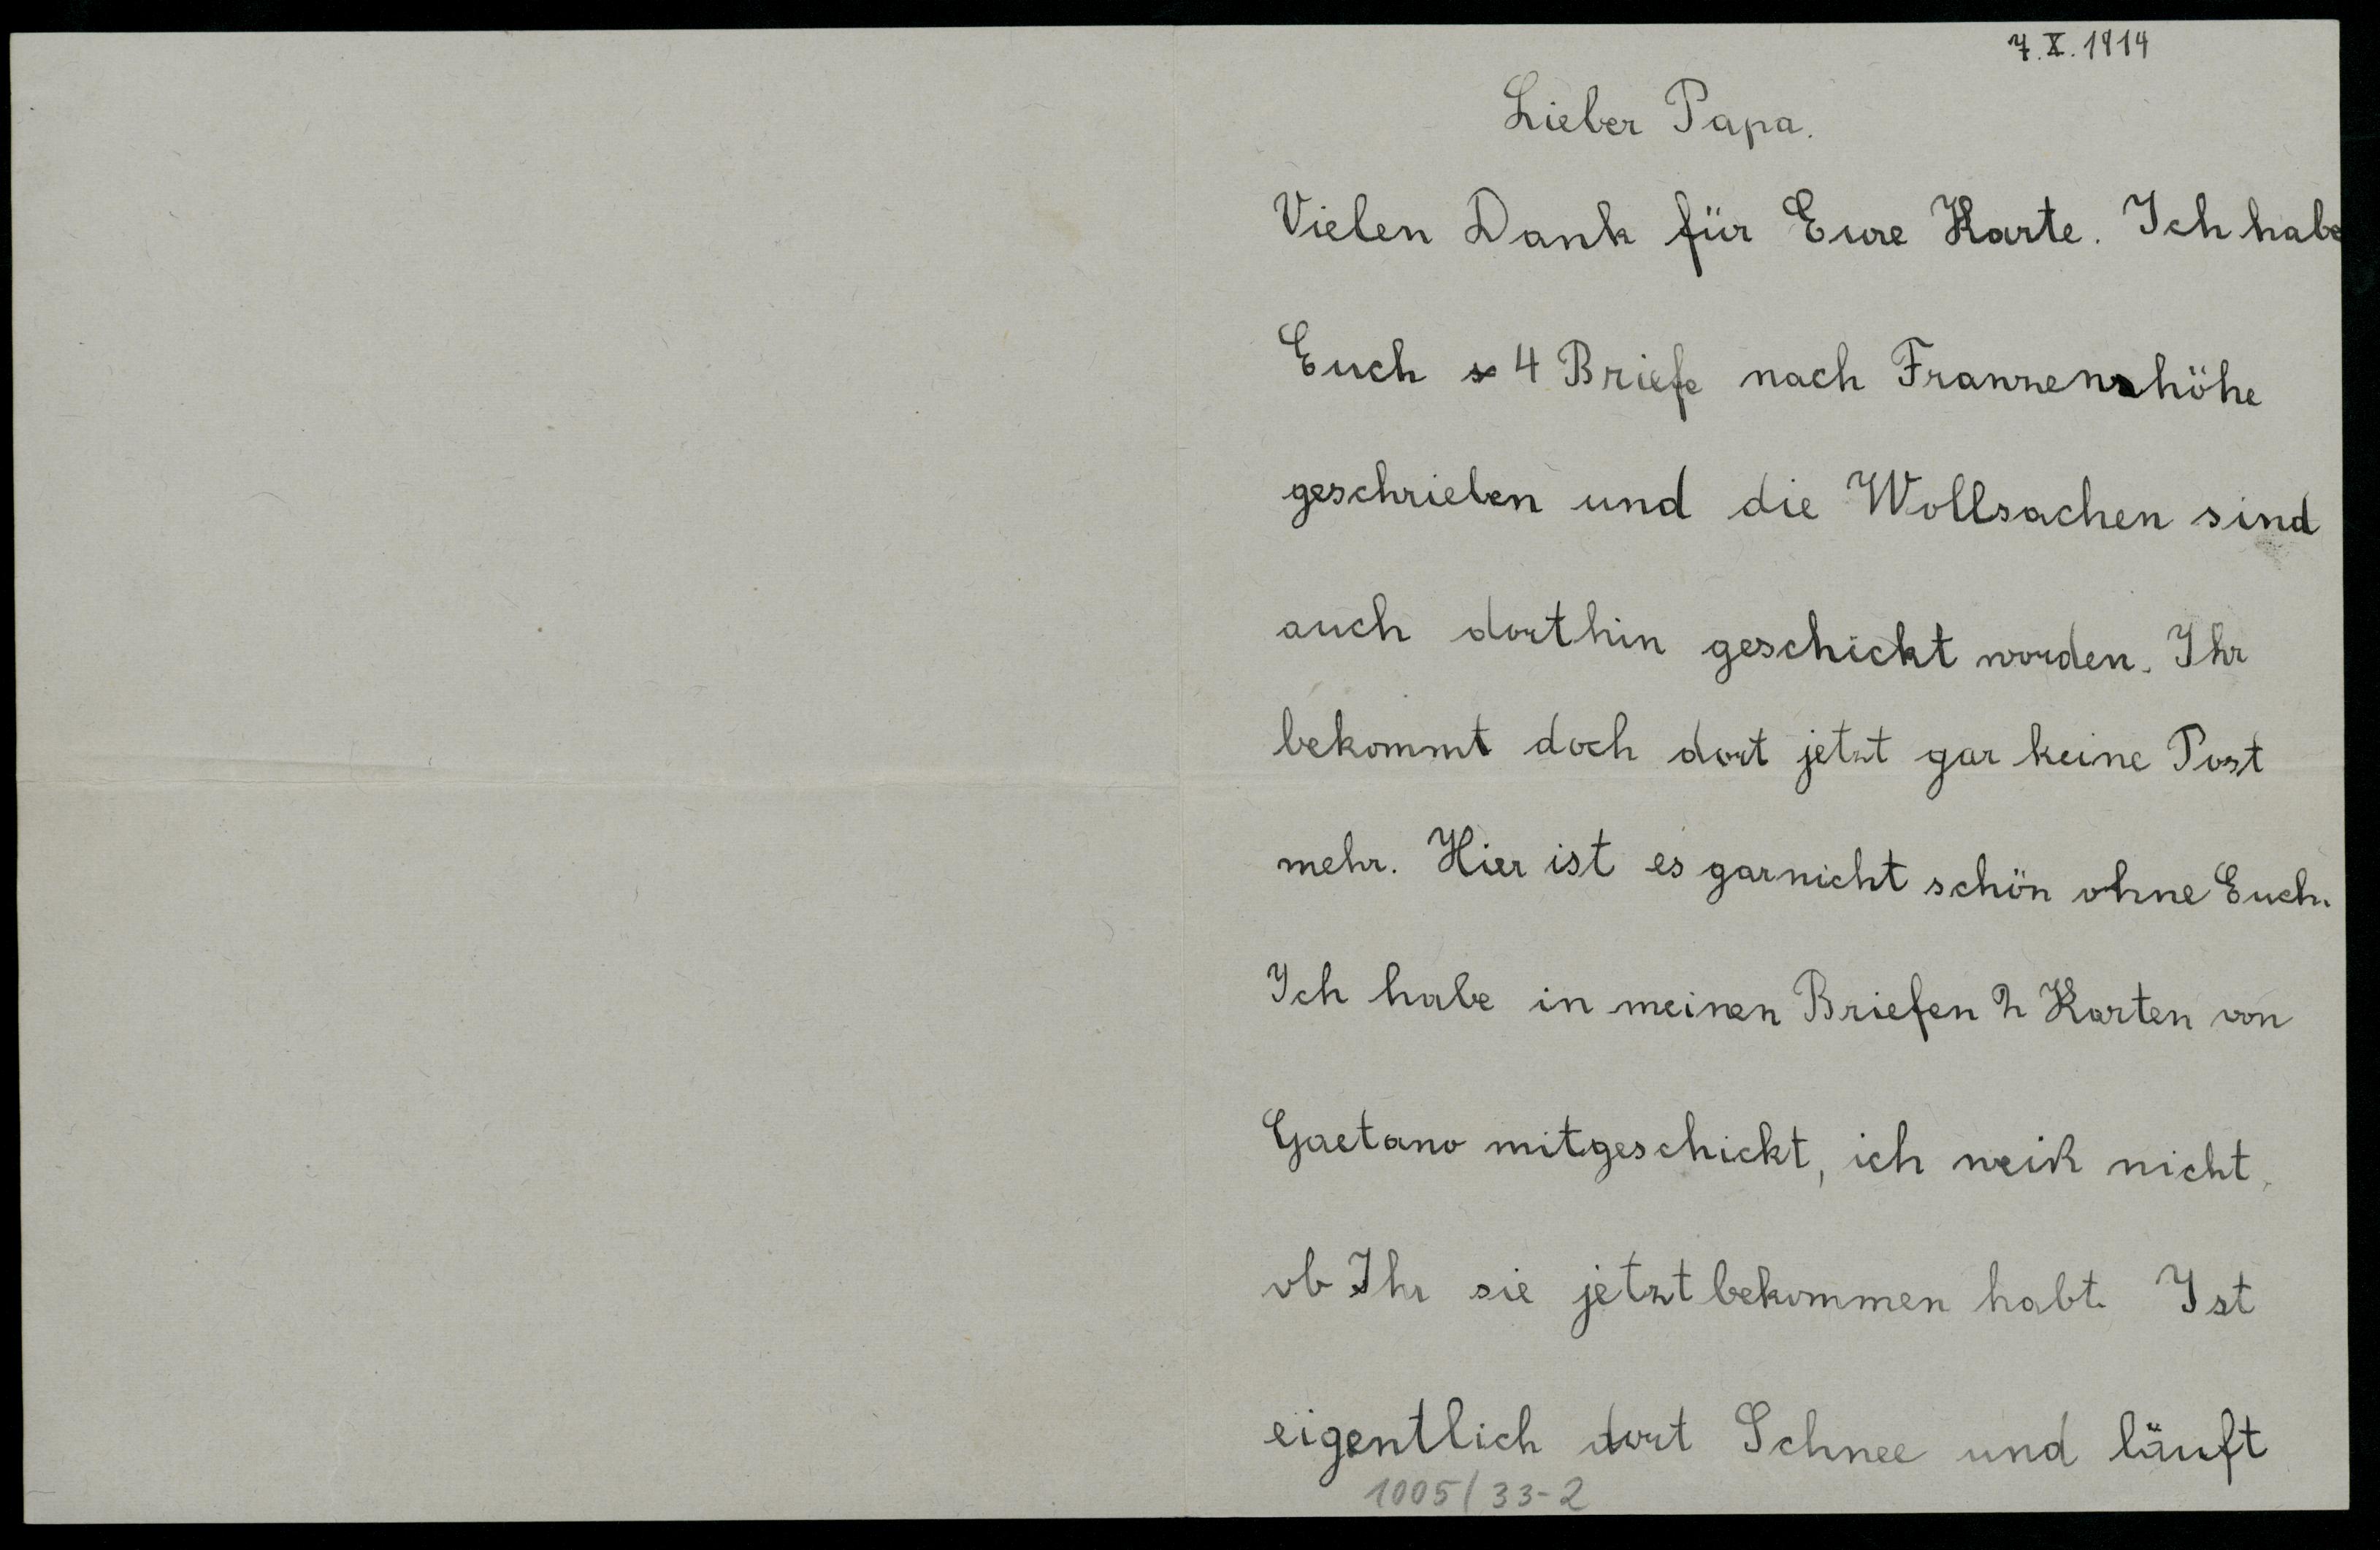 7. X. 1914
Lieber Papa.
Vielen Dank für Eure Karte. Ich habe
Euch 4 Briefe nach Franzenshöhe
geschrieben und die Wollsachen sind
auch dorthin geschickt worden. Ihr
bekommt doch dort jetzt gar keine Post
mehr. Hier ist es garnicht schön ohne Euch.
Ich habe in meinen Briefen 2 Karten von
Gaetano mitgeschickt, ich weiß nicht,
ob Ihr sie jetzt bekommen habt. Ist
eigentlich dort Schnee und läuft
1005/33-2